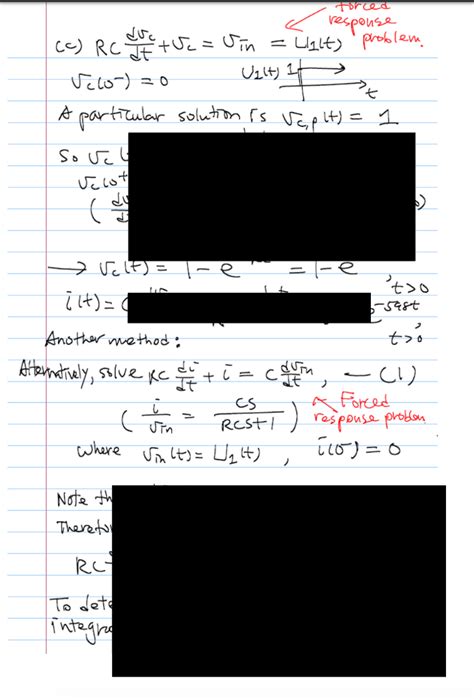 forced
response
problem.
(c) RC dvc/dt + vc = vin = U1(t)
vc(0-) = 0 U1(t) 1 t
A particular solution is vc,p(t) = 1
So vc(
vc(0+
( d
)
→ vc(t) = 1 - e = 1 - e , t>0
i(t) = C -598t
, t>0
Another method:
Alternatively, solve RC di/dt + i = C dvin/dt, — (1)
( i/vin = CS/RCS+1 ) Forced
response problem
where vin(t) = U1(t), i(0-) = 0
Note th
Therefo
RC
To dete
integra